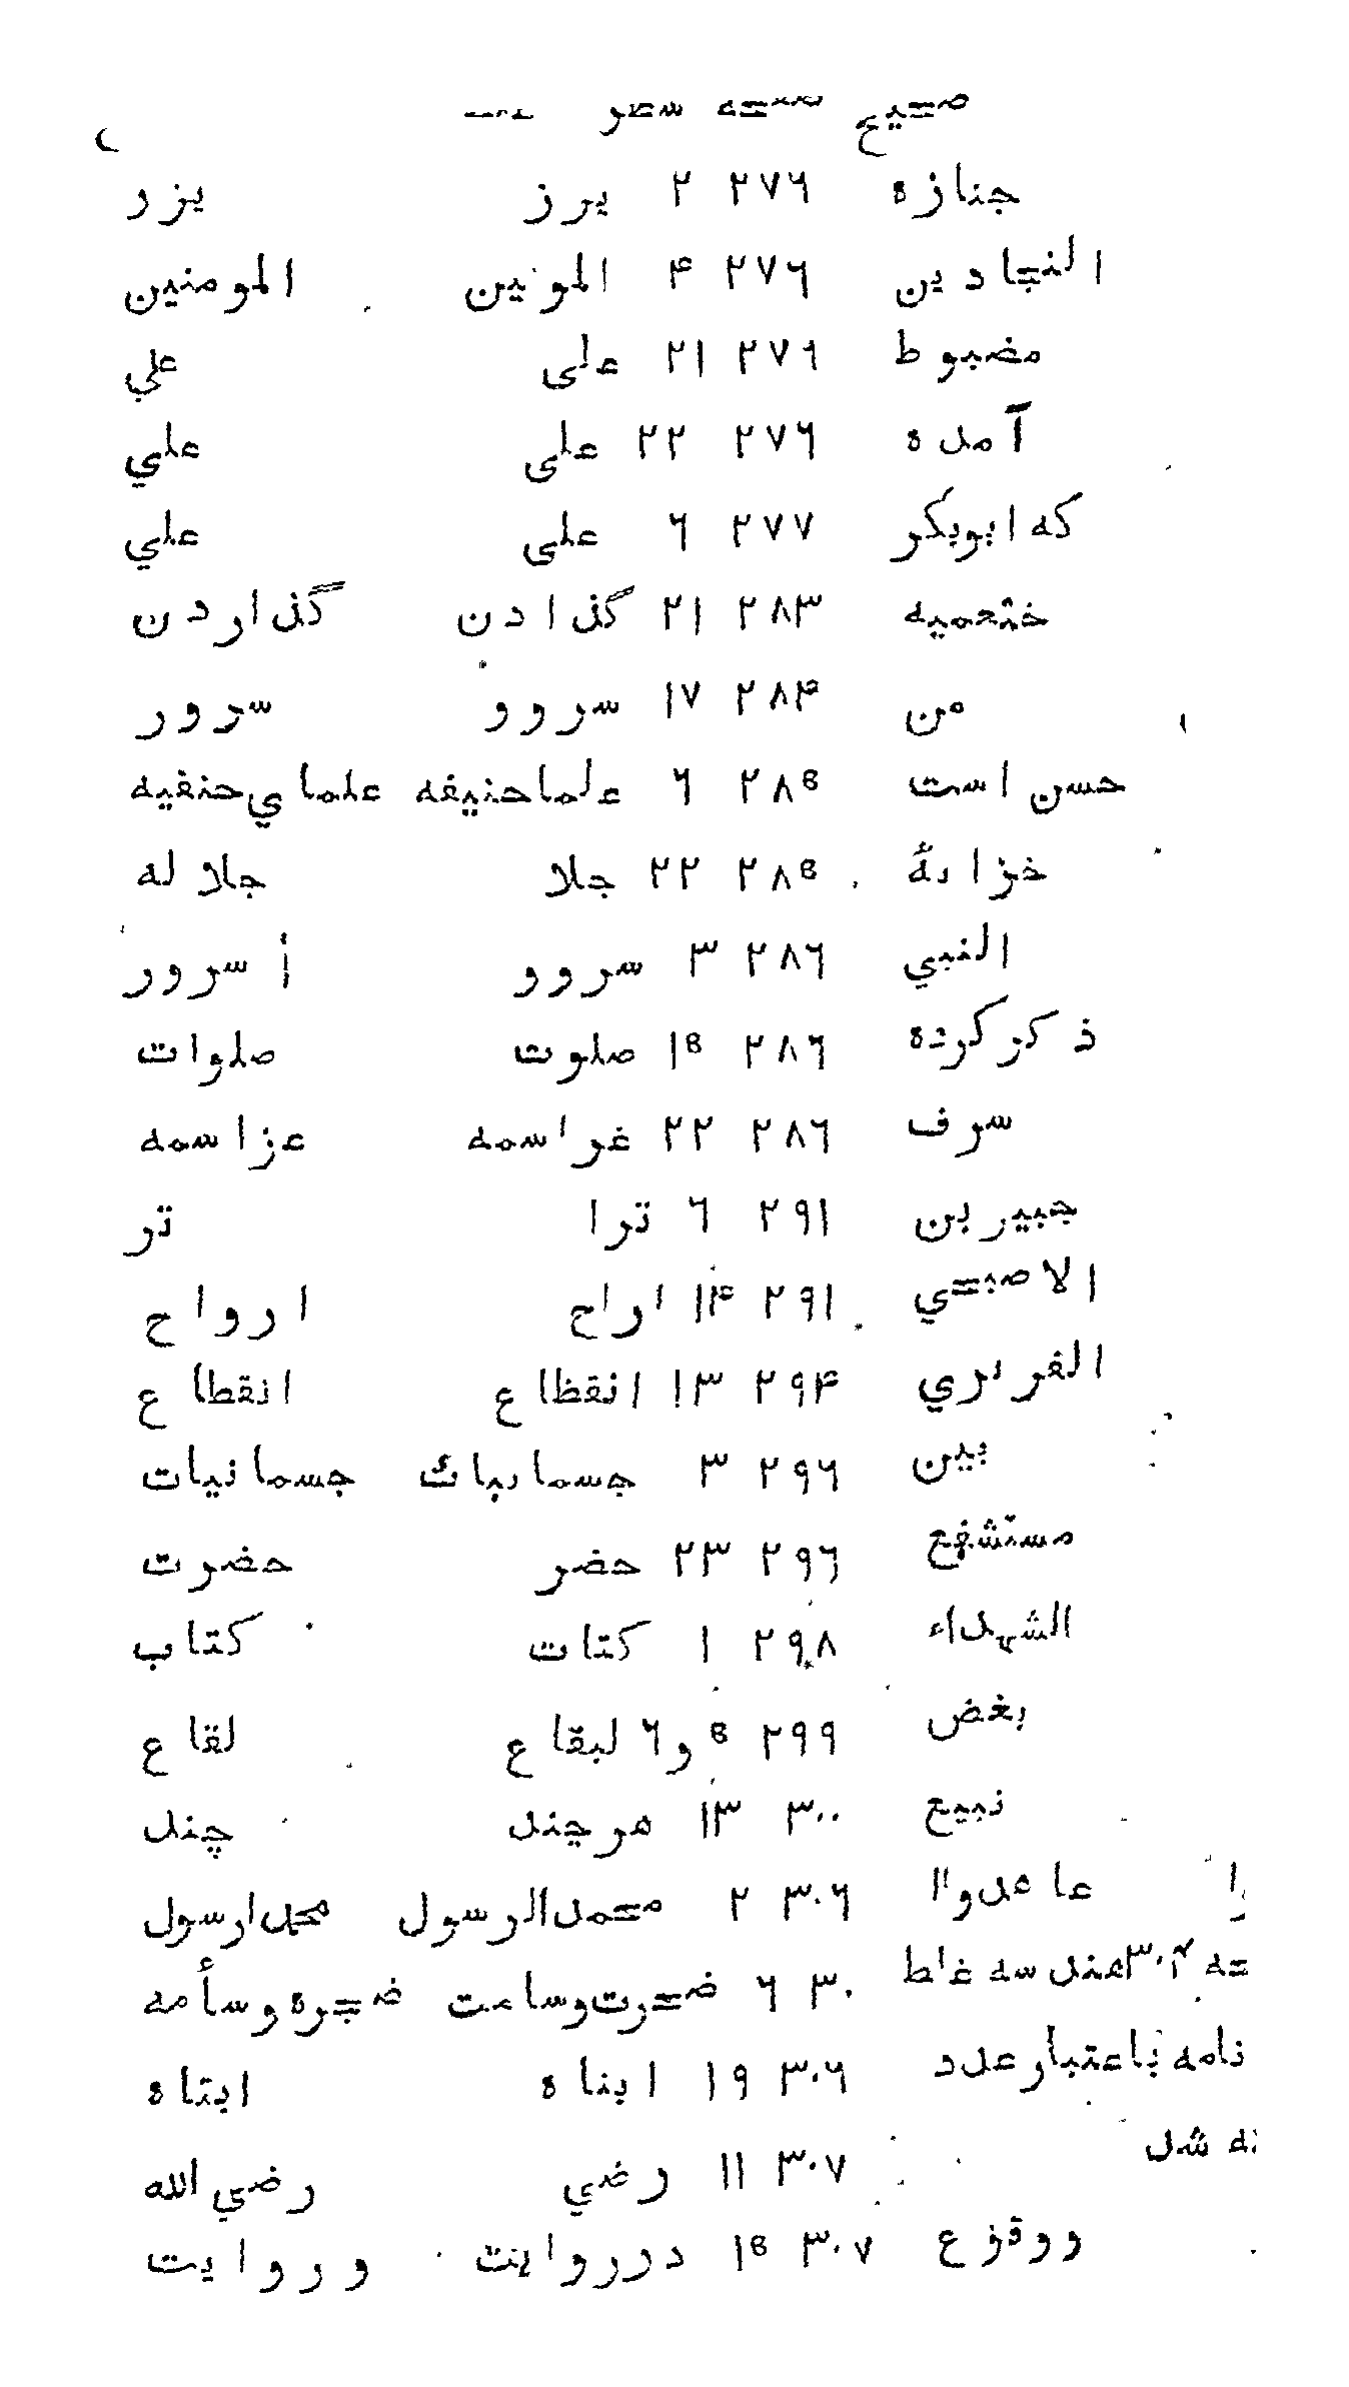 صحيح صفحه سطر
جنازه ۲۷۶ ۲ يرز يزر
النجادين ۲۷۶ ۴ المونين المومنين
مضبوط ۲۷۶ ۲۱ على علي
آمده ۲۷۶ ۲۲ على علي
كه ابوبكر ۲۷۷ ۶ على علي
خثعميه ۲۸۳ ۲۱ گذادن گذاردن
من ۲۸۴ ۱۷ سروو سرور
حسن است ۲۸۵ ۶ علماحنيفه علماي حنفيه
۲۸۵ ۲۲ جلا جلاله
النبي ۲۸۶ ۳ سروو أ سرور
ذكر كرده ۲۸۶ ۱۵ صلوت صلوات
سرف ۲۸۶ ۲۲ غراسمه عزاسمه
جبير بن ۲۹۱ ۶ ترا تر
الاصبحي ۲۹۱ ۱۴ اراح ارواح
الفربري ۲۹۴ ۱۳ انقظاع انقطاع
بين ۲۹۶ ۳ جسمانيات
مستشفع ۲۹۶ ۲۳ حضر حضرت
الشهداء ۲۹۸ ۱ كتات كتاب
بغض ۲۹۹ ۵ و۶ لبقاع لقاع
نبيع ۳۰۰ ۱۳ هرچند چند
عاهدوا ۳۰۶ ۲ محمدالرسول محمدارسول
۳۰۴ هندسه غلط ۳۰ ۶ ضجرت وسامت ضجره وسأمه
نامه باعتبار عدد ۳۰۶ ۱۹ ابناه ابتاه
شد ۳۰۷ ۱۱ رضي رضي الله
ووقوع ۳۰۷ ۱۵ درروايت وروايت